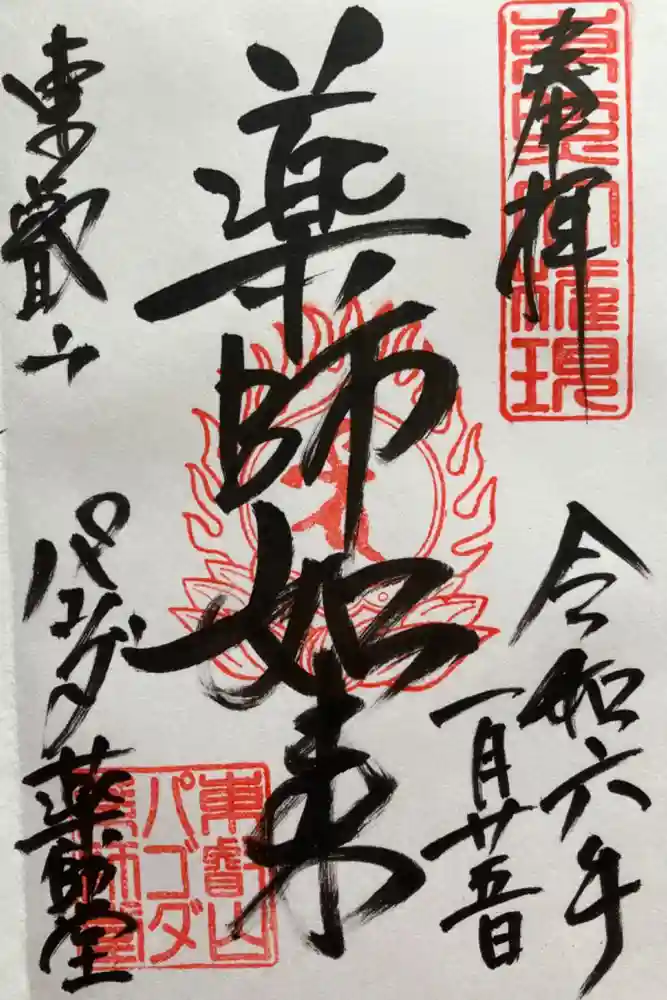 奉拝
東照大権現
令和六年
一月廿五日
薬師如来
東叡山
パゴダ
薬師堂
東叡山
パゴダ
薬師堂